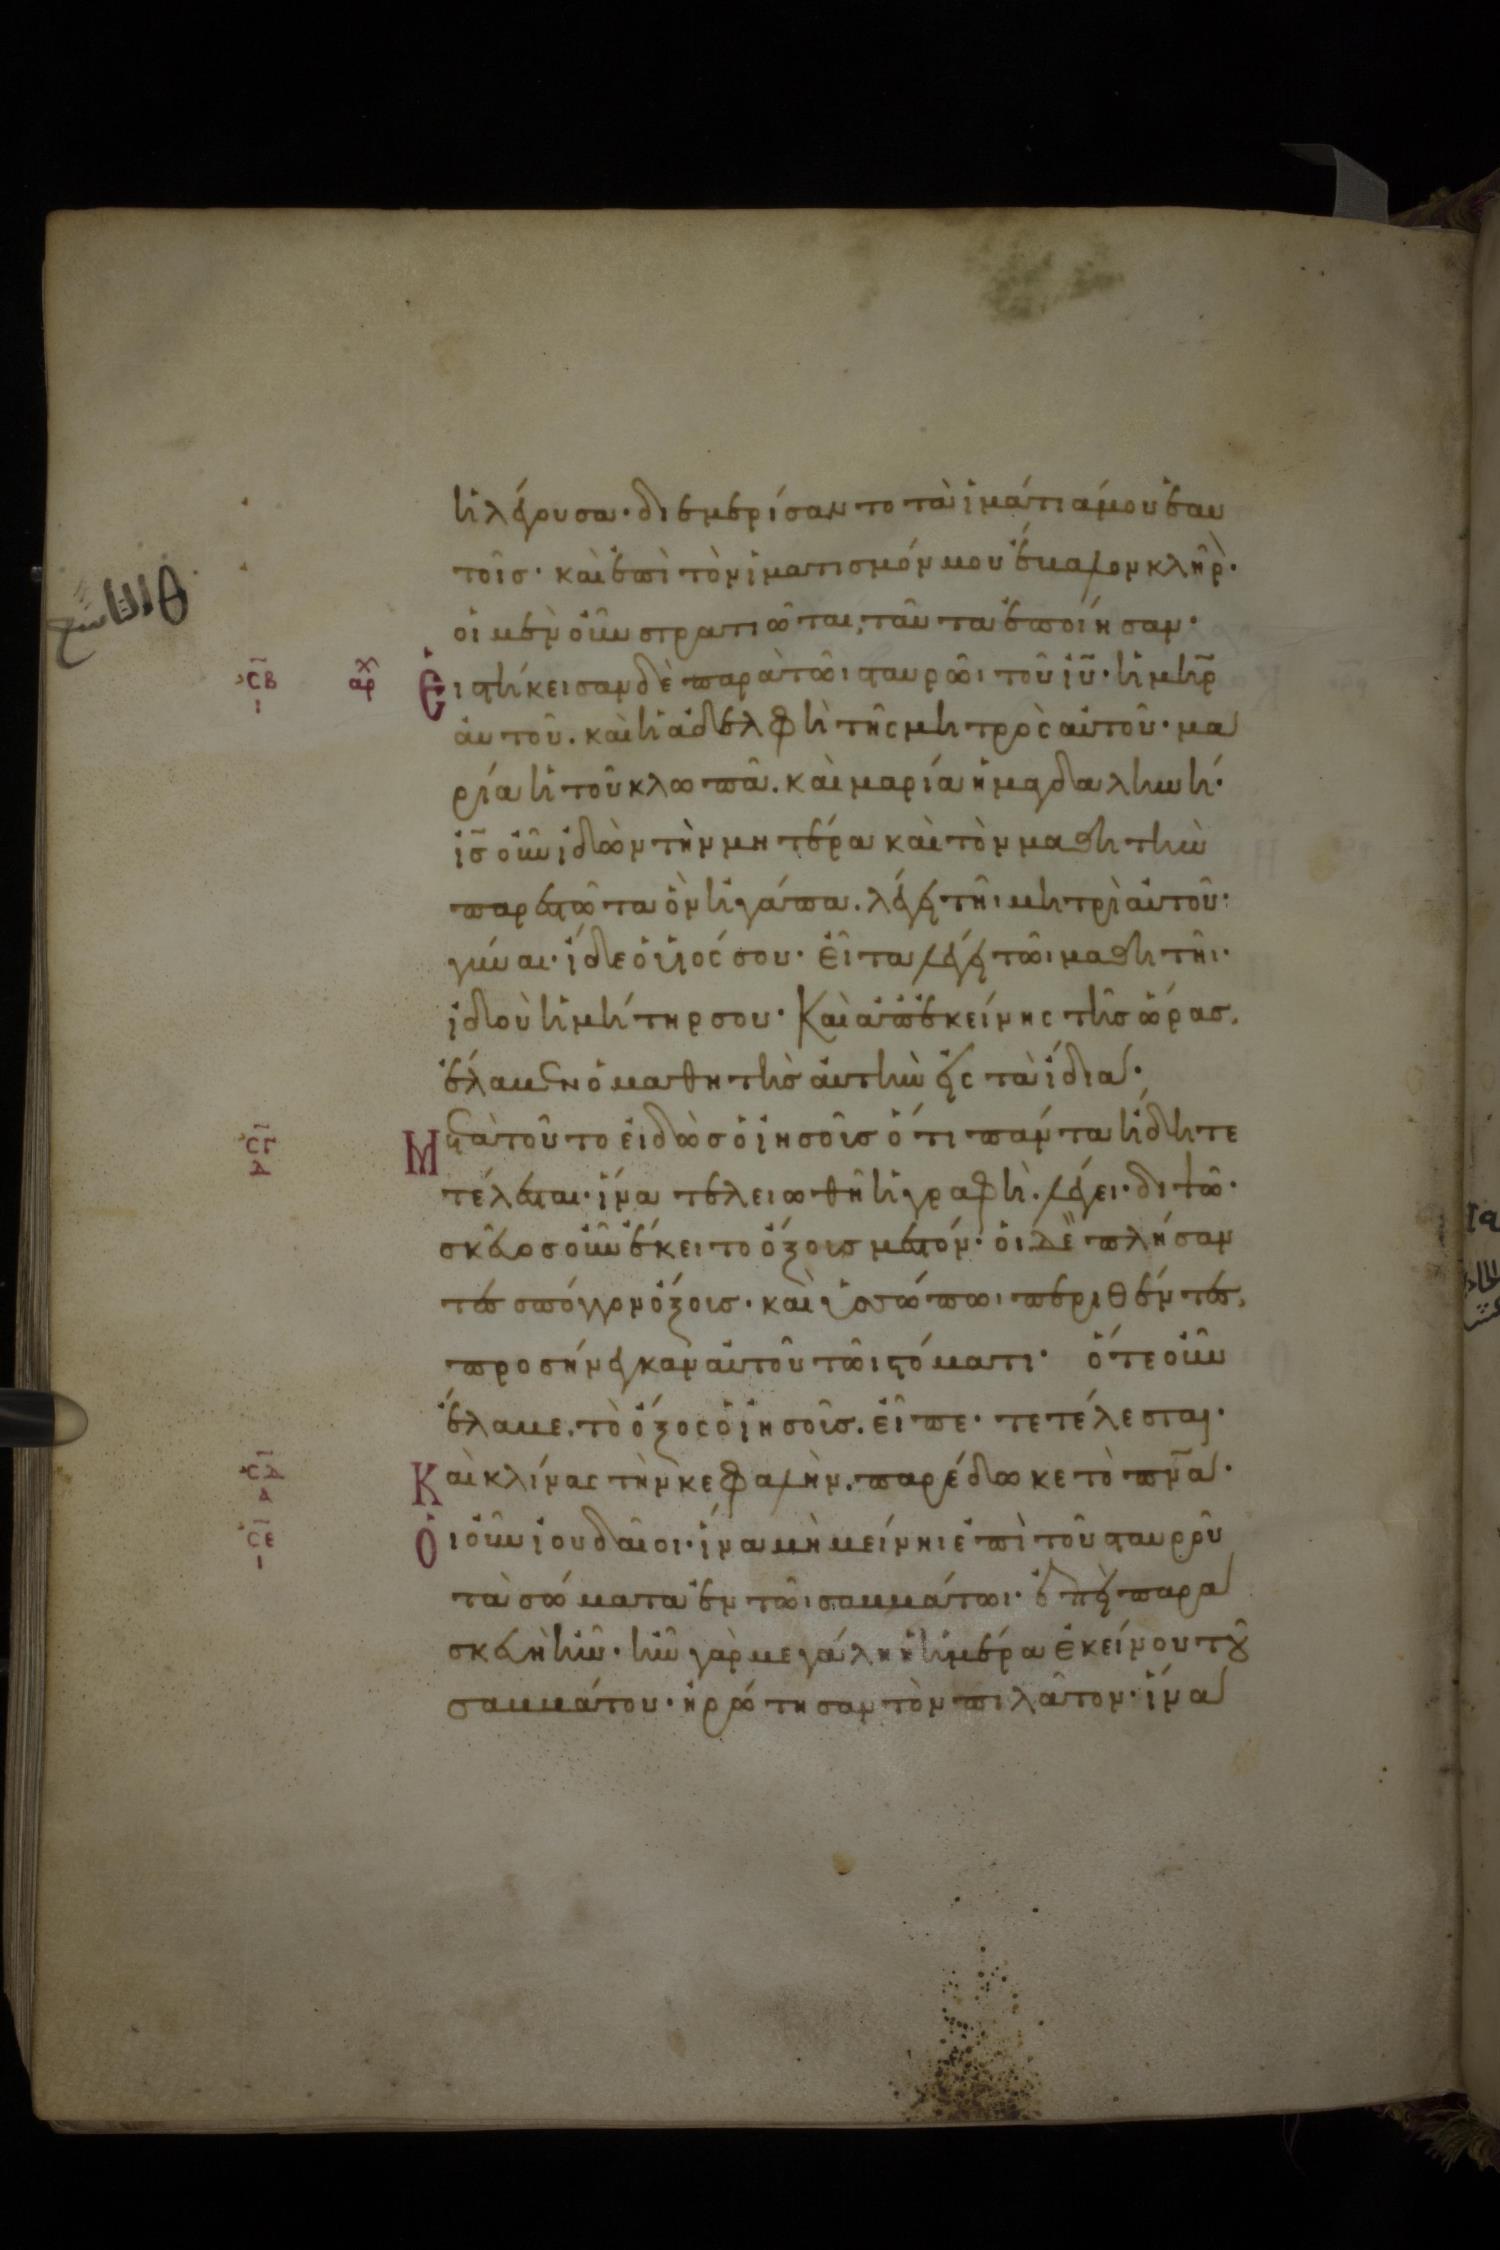 ἡ λέγουσα· διεμερίσαντο τὰ ἱμάτιά μου ἑαυ
τοῖσ· καὶ ἐπὶ τὸν ἱματισμόν μου ἔβαλον κλῆρ·
οἱ μὲν οὖν στρατιῶται, ταῦτα ἐποίησαν·
σ̅β̅ ι αρχ Εἱστήκεισαν δὲ παρὰ τῶι σταυρῶι τοῦ ἰυ̅· ἡ μηρ̅
ἀυτοῦ. καὶ ἡ ἀδελφὴ τῆς μητρὸς αὐτοῦ· μα
ρία ἡ τοῦ κλωπᾶ. καὶ μαρία ἡ μαγδαληνή·
ἰσ̅ οὖν ἰδὼν τὴν μητέρα καὶ τὸν μαθητὴν
παρεστῶτα ὃν ἠγάπα. λέγει τῆι μητρὶ αὐτοῦ·
γύναι· ἴδε ὁ υἱός σου· εἶτα λέγει τῶι μαθητῆι·
ἰδοὺ ἡ μήτηρ σου· Καὶ ἀπ' ἐκείνης τῆσ ὥρασ.
ἔλαβεν ὁ μαθητὴσ ἀυτὴν εἰς τὰ ἴδια·
σ̅γ̅ δ Μετὰ τοῦτο εἰδὼσ ὁ ἰησοῦσ ὅτι πάντα ἤδη τε
τέλεσται· ἵνα τελειωθῆ ἡ γραφὴ. λέγει· διψῶ·
σκεῦοσ οὖν ἔκειτο ὄξουσ μεστόν· οἱ δὲ πλήσαν
τεσ σπόγγον ὄξουσ· καὶ ὑσσώπωι περιθέντεσ,
προσήνεγκαν αὐτοῦ τῶι στόματι· ὅτε οὖν
ἔλαβε. τὸ ὄξος ὁ ἰησοῦσ. εἶπε· τετέλεσται·
σ̅δ̅ α Καὶ κλίνας τὴν κεφαλὴν. παρέδωκε τὸ πν̅α·
σ̅ε̅ ι Οἱ οὖν ἰουδαῖοι· ἵνα μὴ μείνηι ἐπὶ τοῦ σταυροῦ
τὰ σώματα ἐν τῶι σαββάτωι· ἐπεὶ παρα
σκευὴ ἦν· ἦν γὰρ μεγάλη ἡ ἡμέρα ἐκείνου τοῦ
σαββάτου· ἠρώτησαν τὸν πιλᾶτον· ἵνα